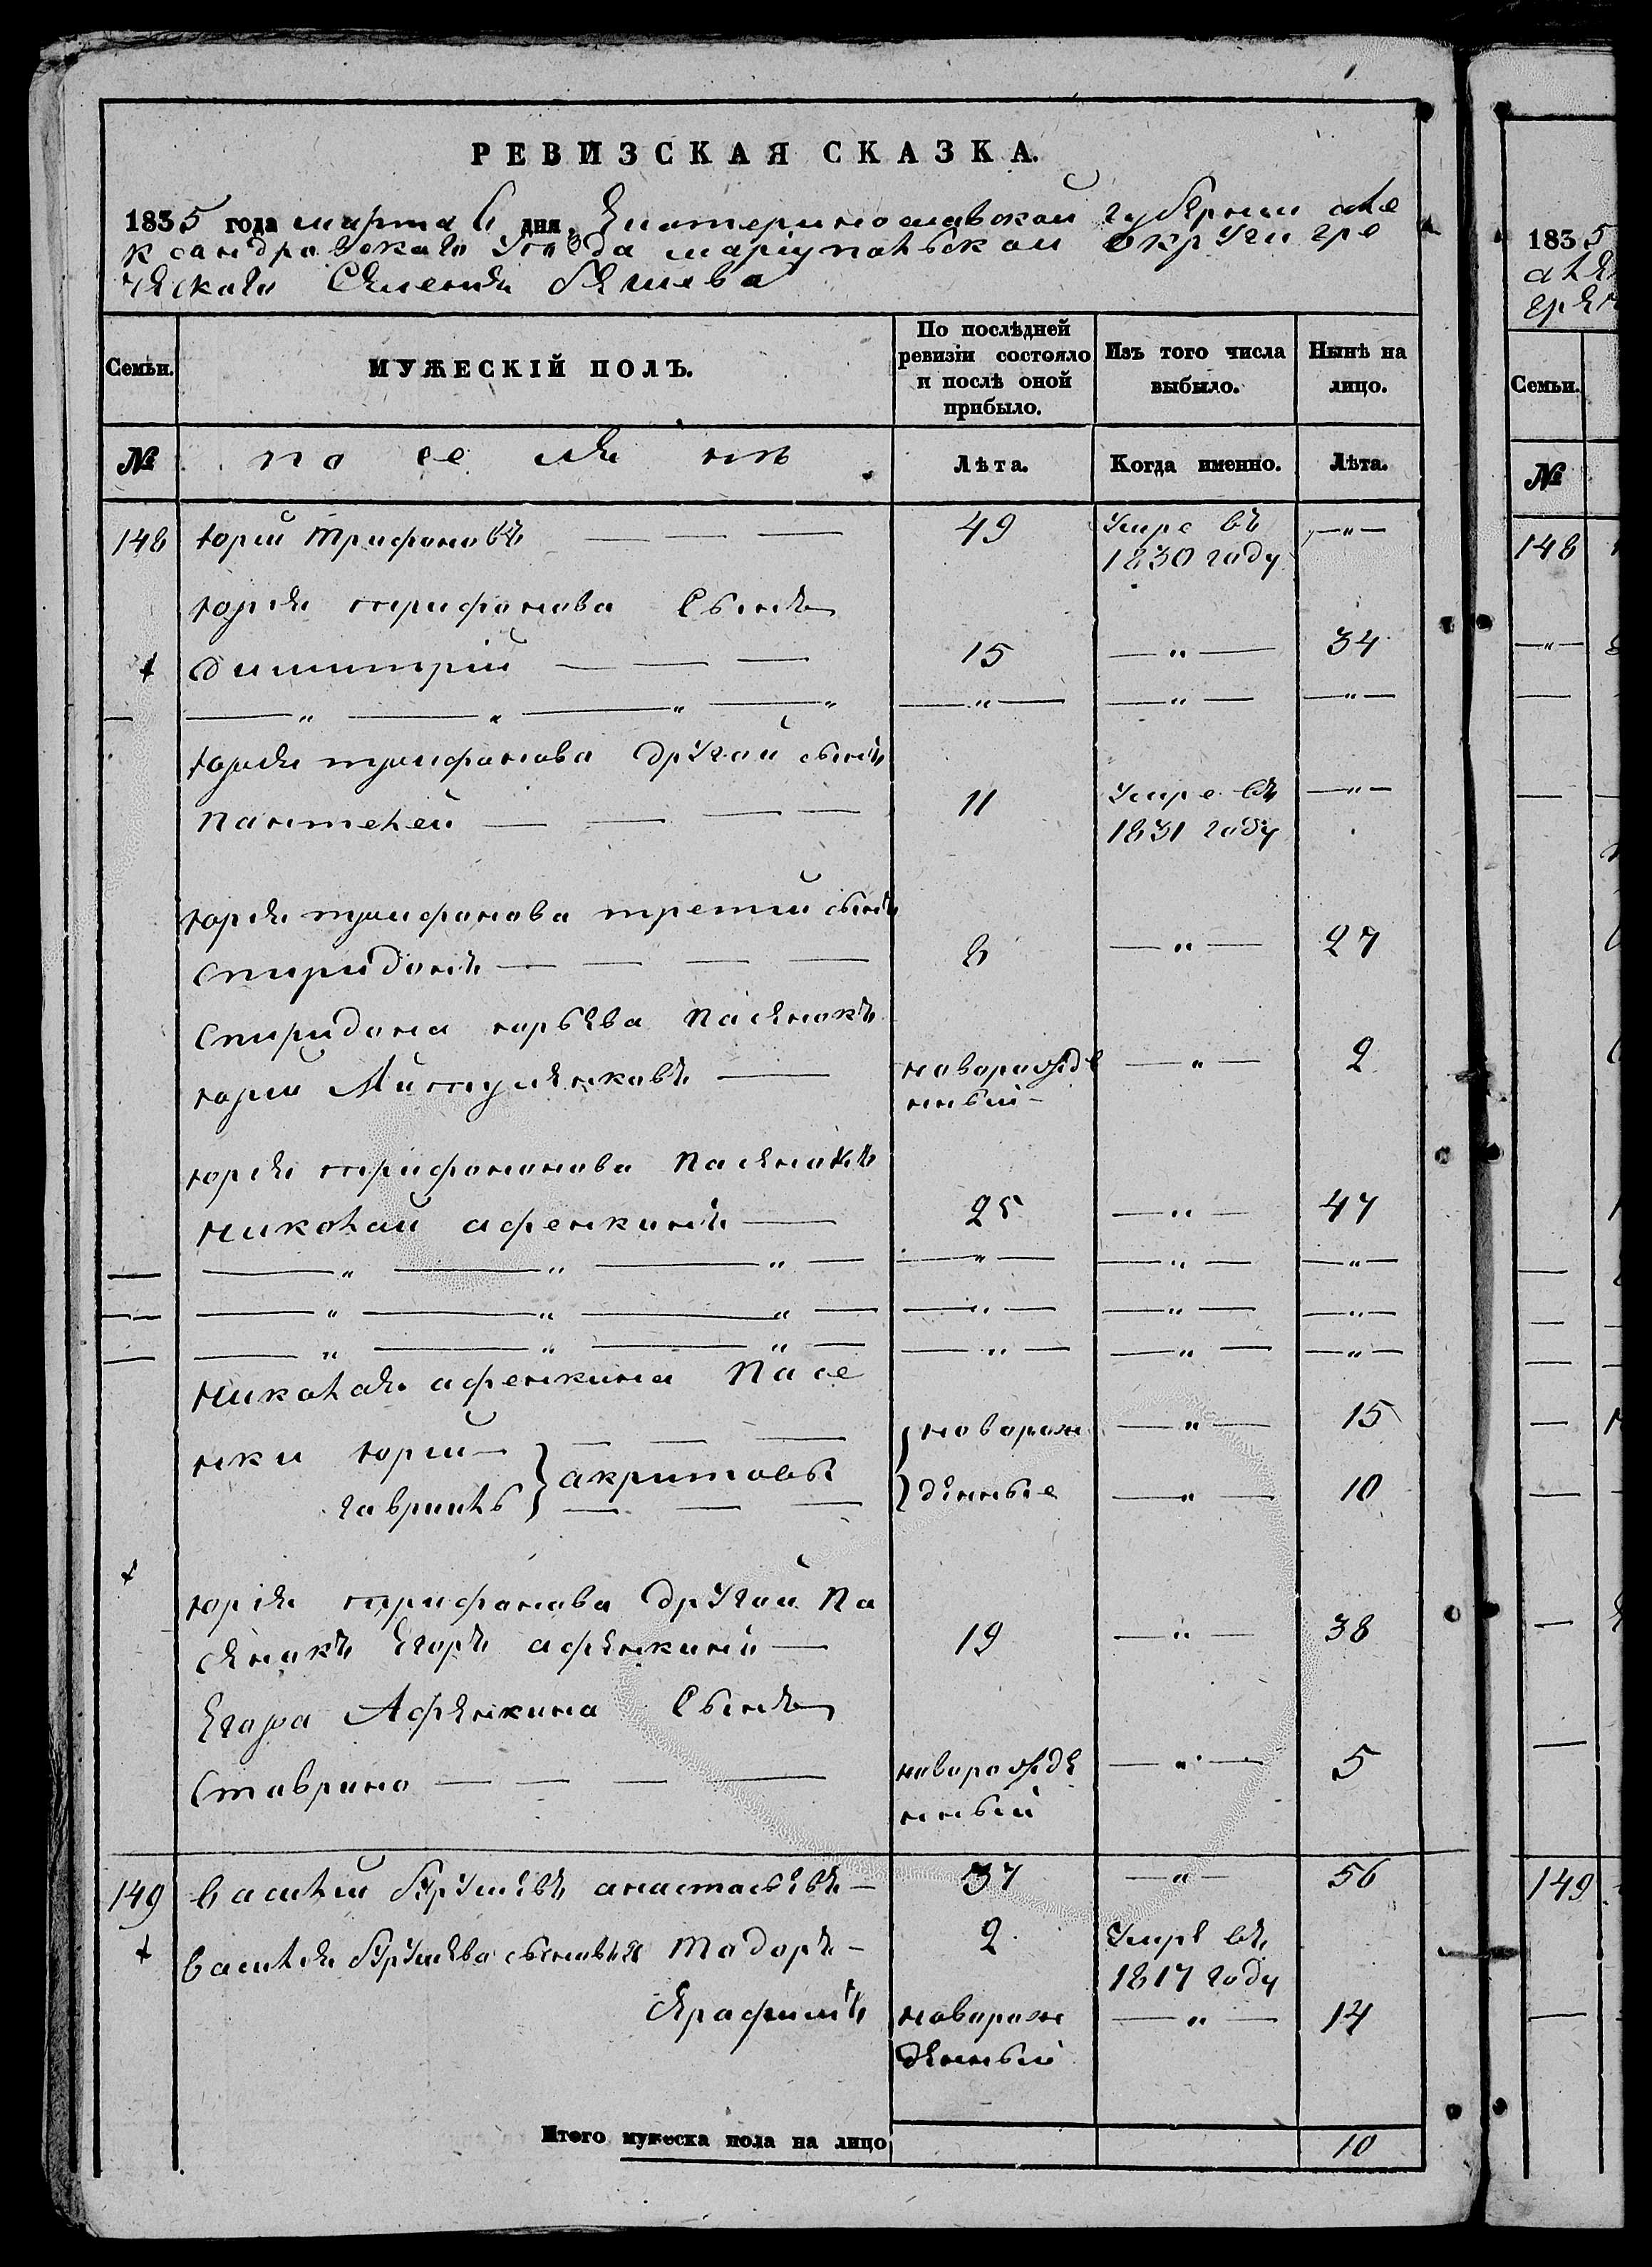 РЕВИЗСКАЯ СКАЗКА.
1835 года марта 6 дня, Екатеринославской губернии Але
ксандровскаго уезда мариупольскои округи гре
ческаго Селения бешева
Семьи.
МУЖЕСКІЙ ПОЛЪ.
По послѣдней ревизіи состояло и послѣ оной прибыло.
Изъ того числа выбыло.
Нынѣ на лицо.
№
поселяне
Лѣта.
Когда именно.
Лѣта.
148 Юрий Трифоновъ — — — 49 Умре въ —"—
1830 году
Юрия трифонова Сынъ
Димитрій — — — 15 —"— 34
—"— —"— —"—
Юрия трифонова другой сынъ
Пантелей — — — — 11 Умре въ —"—
1831 году
Юрия трифонова третий сынъ
Спиридонъ — — — — 8 —"— 27
Спиридона юрьева Пасенокъ
Юрий — новорожде —"— 2
нный
Юрия трифонова Пасенокъ
николай афенкинъ — 25 —"— 47
—"— —"— —"—
—"— —"— —"—
—"— —"— —"—
николая афенкина Пасе
нки Юрий — новорож —"— 15
гаврилъ } акритовы денные —"— 10
Юрия трифонова другой Па
сенокъ Егоръ афенкинъ — 19 —"— 38
Егора Афенкина Сынъ
Ставрино — — — — новорожде —"— 5
нный
149 Василий анастасьевъ — 37 —"— 56
Василия сыновья Тодоръ — 2 Умре въ
1817 году
Серафимъ новорож —"— 14
денный
Итого мужеска пола на лицо 10
1835
Семьи.
№
148
149